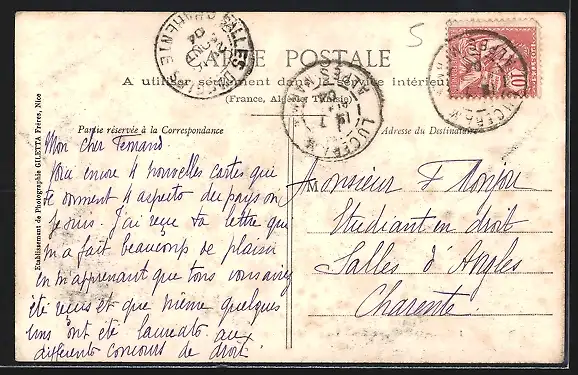 CARTE POSTALE
A utiliser seulement dans le service intérieur
(France, Algérie, Tunisie)
Partie réservée à la Correspondance
Adresse du Destinataire
Etablissement de Photographie GILETTA Frères, Nice
5
LUCERAM
Mon cher Fernand
4 nouvelles cartes qui
te donnent 4 aspects du pays où
je suis. J'ai reçu ta lettre qui
m'a fait beaucoup de plaisir
en m'apprenant que tous
été reçus et que même quelques
uns ont été laureats aux
différents concours de droit.
Monsieur F
Etudiant en droit
Salles d'Angles
Charente